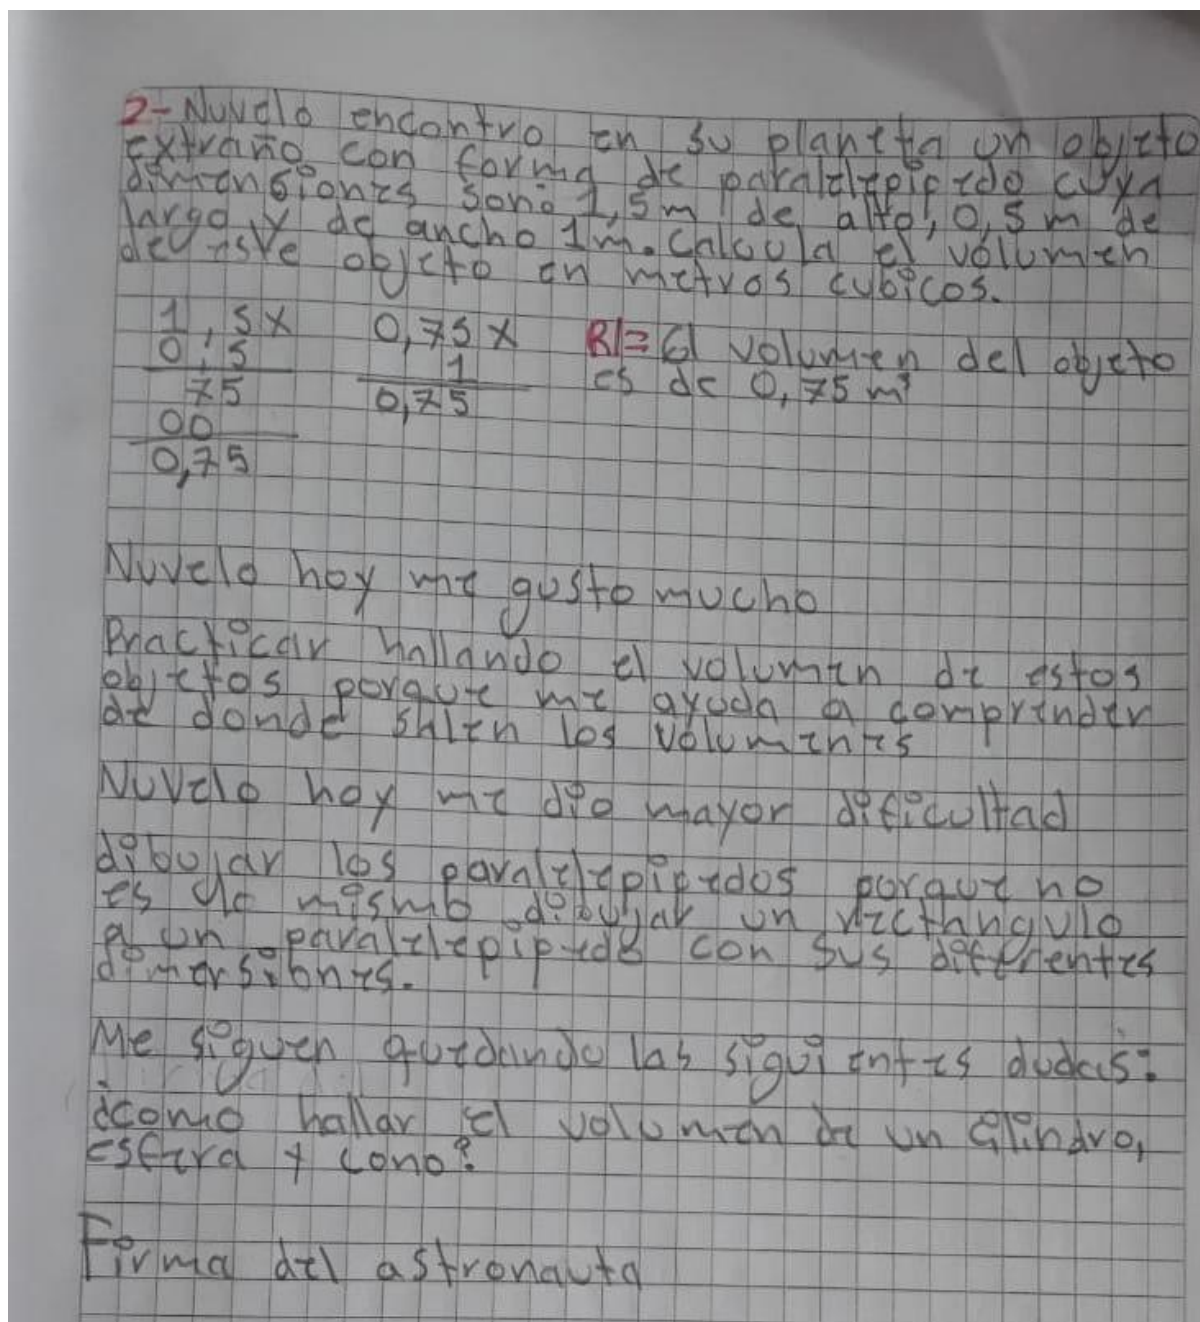 2- Nuvelo encontro en su planeta un objeto
extraño con forma de paralelepipedo cuya
dimensiones son: 1,5m de alto, 0,5 m de
largo y de ancho 1m. Calcula el volumen
de este objeto en metros cubicos.
1,5 x 0,75 x R/= El volumen del objeto
0,5 1 es de 0,75 m³
75 0,75
00
0,75
Nuvelo hoy me gusto mucho
Practicar hallando el volumen de estos
objetos porque me ayuda a comprender
de donde salen los volumenes
Nuvelo hoy me dio mayor dificultad
dibujar los paralelepipedos porque no
es lo mismo dibujar un rectangulo
a un paralelepipedo con sus differentes
dimersiones.
Me siguen quedando las siguientes dudas:
¿como hallar el volumen de un cilindro,
esfera y cono?
Firma del astronauta